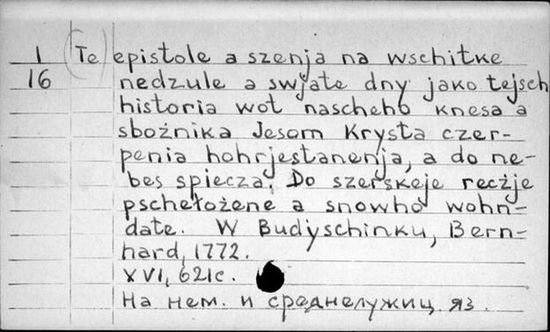 1 (Te) epistole a szenja na wschitke
16 nedzule a swjate dny jako tejsch
historia wot nascheho knesa a
sbožnika Jesom Krysta czer-
penia hohrjestanenja, a do ne-
bes spiecza. Do szerskeje recżje
pschełożene a snowho wohn-
date. W Budyschinku, Bern-
hard, 1772.
XVI, 621c.
На нем. и среднелужиц. яз.